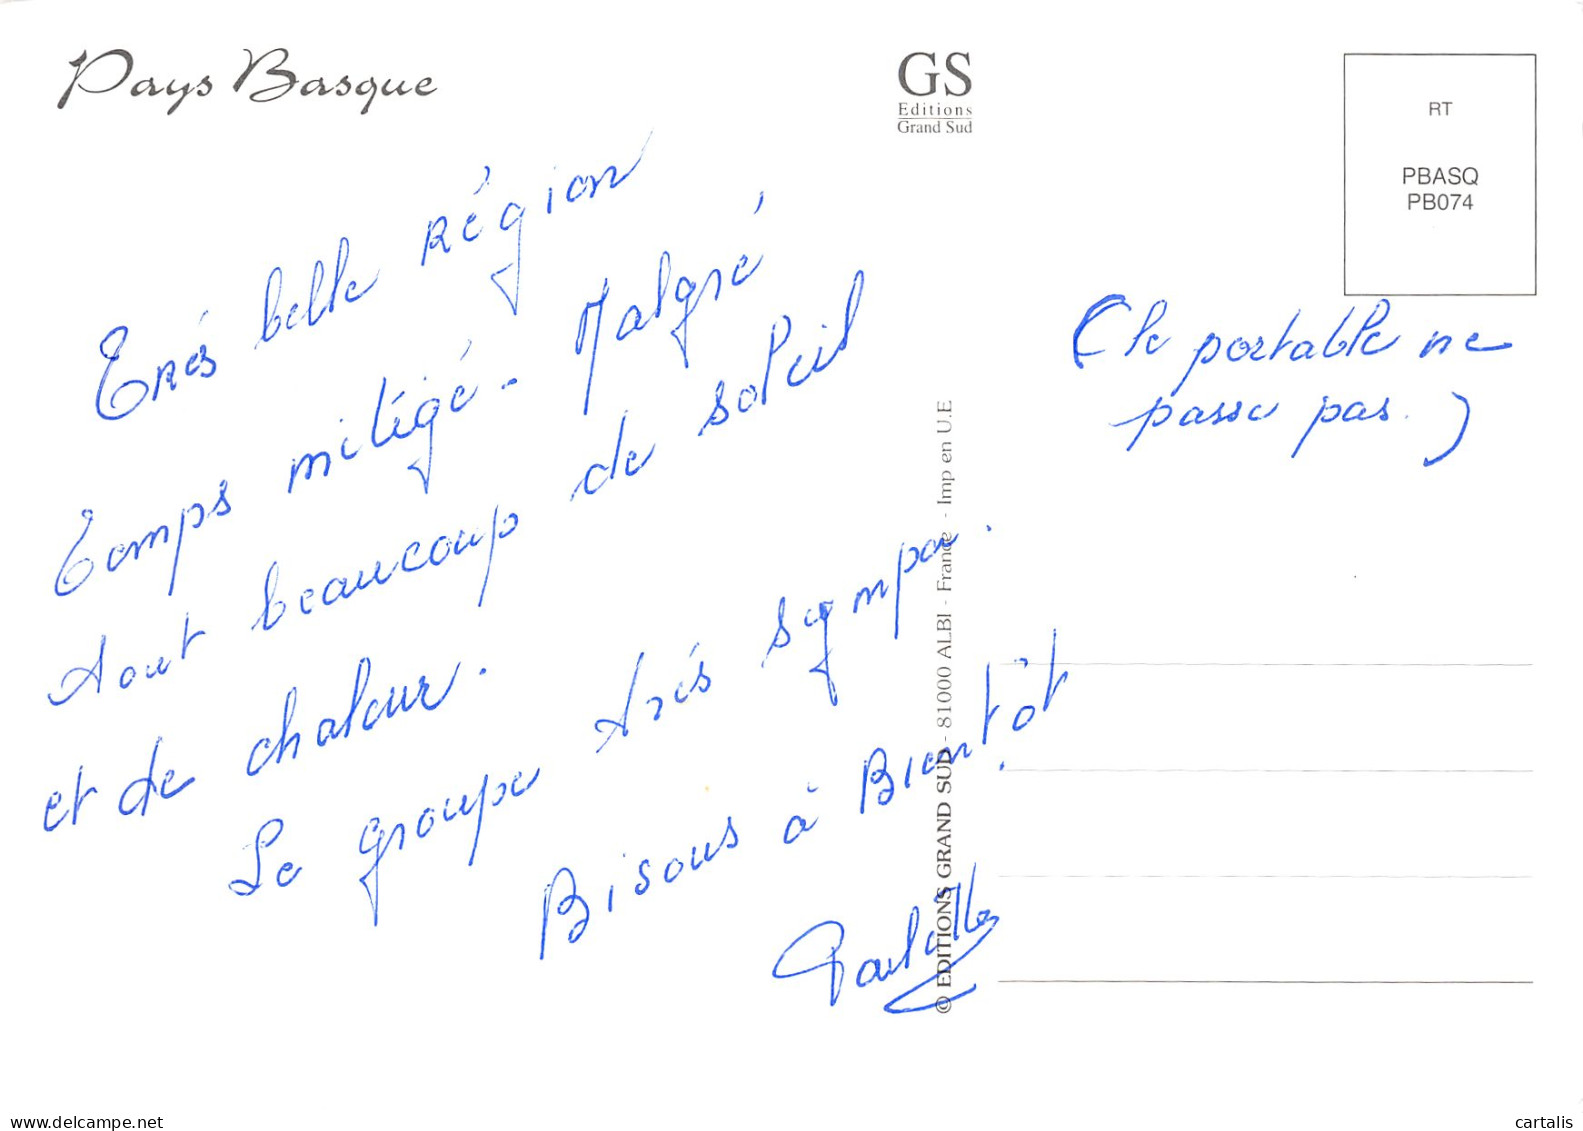 Pays Basque
GS
Editions
Grand Sud
RT
PBASQ
PB074
Très belle Région
Temps mitigé - Malgré
tout beaucoup de soleil
et de chaleur.
Le groupe très sympa.
Bisous à Bientôt
(le portable ne
passe pas.)
© EDITIONS GRAND SUD - 81000 ALBI - France - Imp en U.E
www.delcampe.net
cartalis